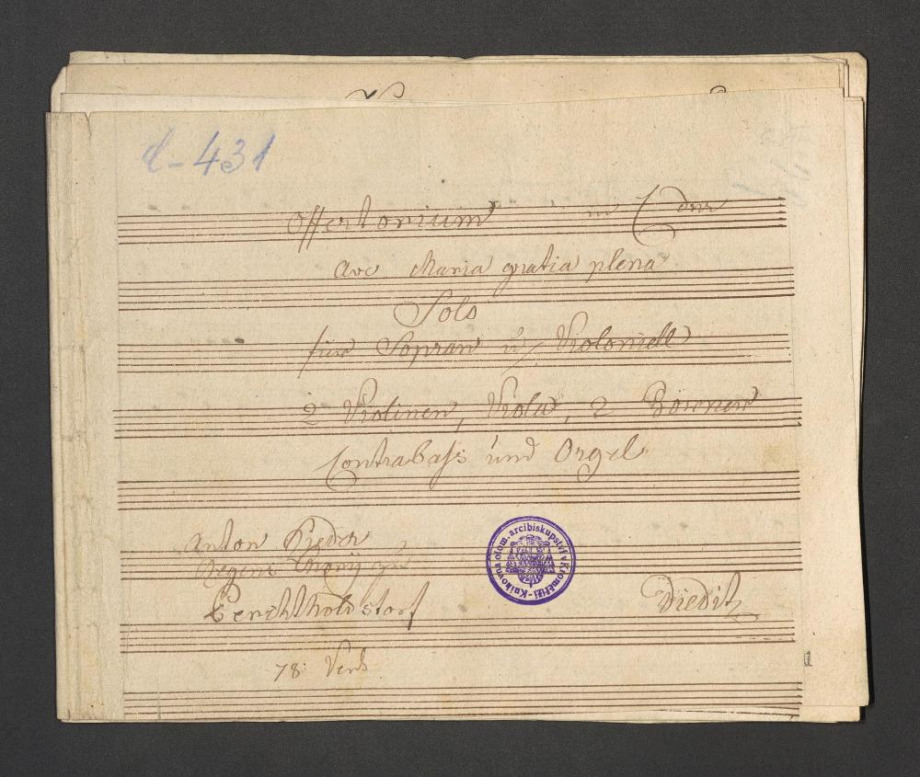 d-431
Offertorium in C dur
Ave Maria gratia plena
Solo
für Sopran u Violoncell
2 Violinen, Viola, 2
Contrabass und Orgel
Anton
Regens Chorij
Berchtholdstorf
Diedit
78
Knihovna olom. arcibiskupství v Kroměříži